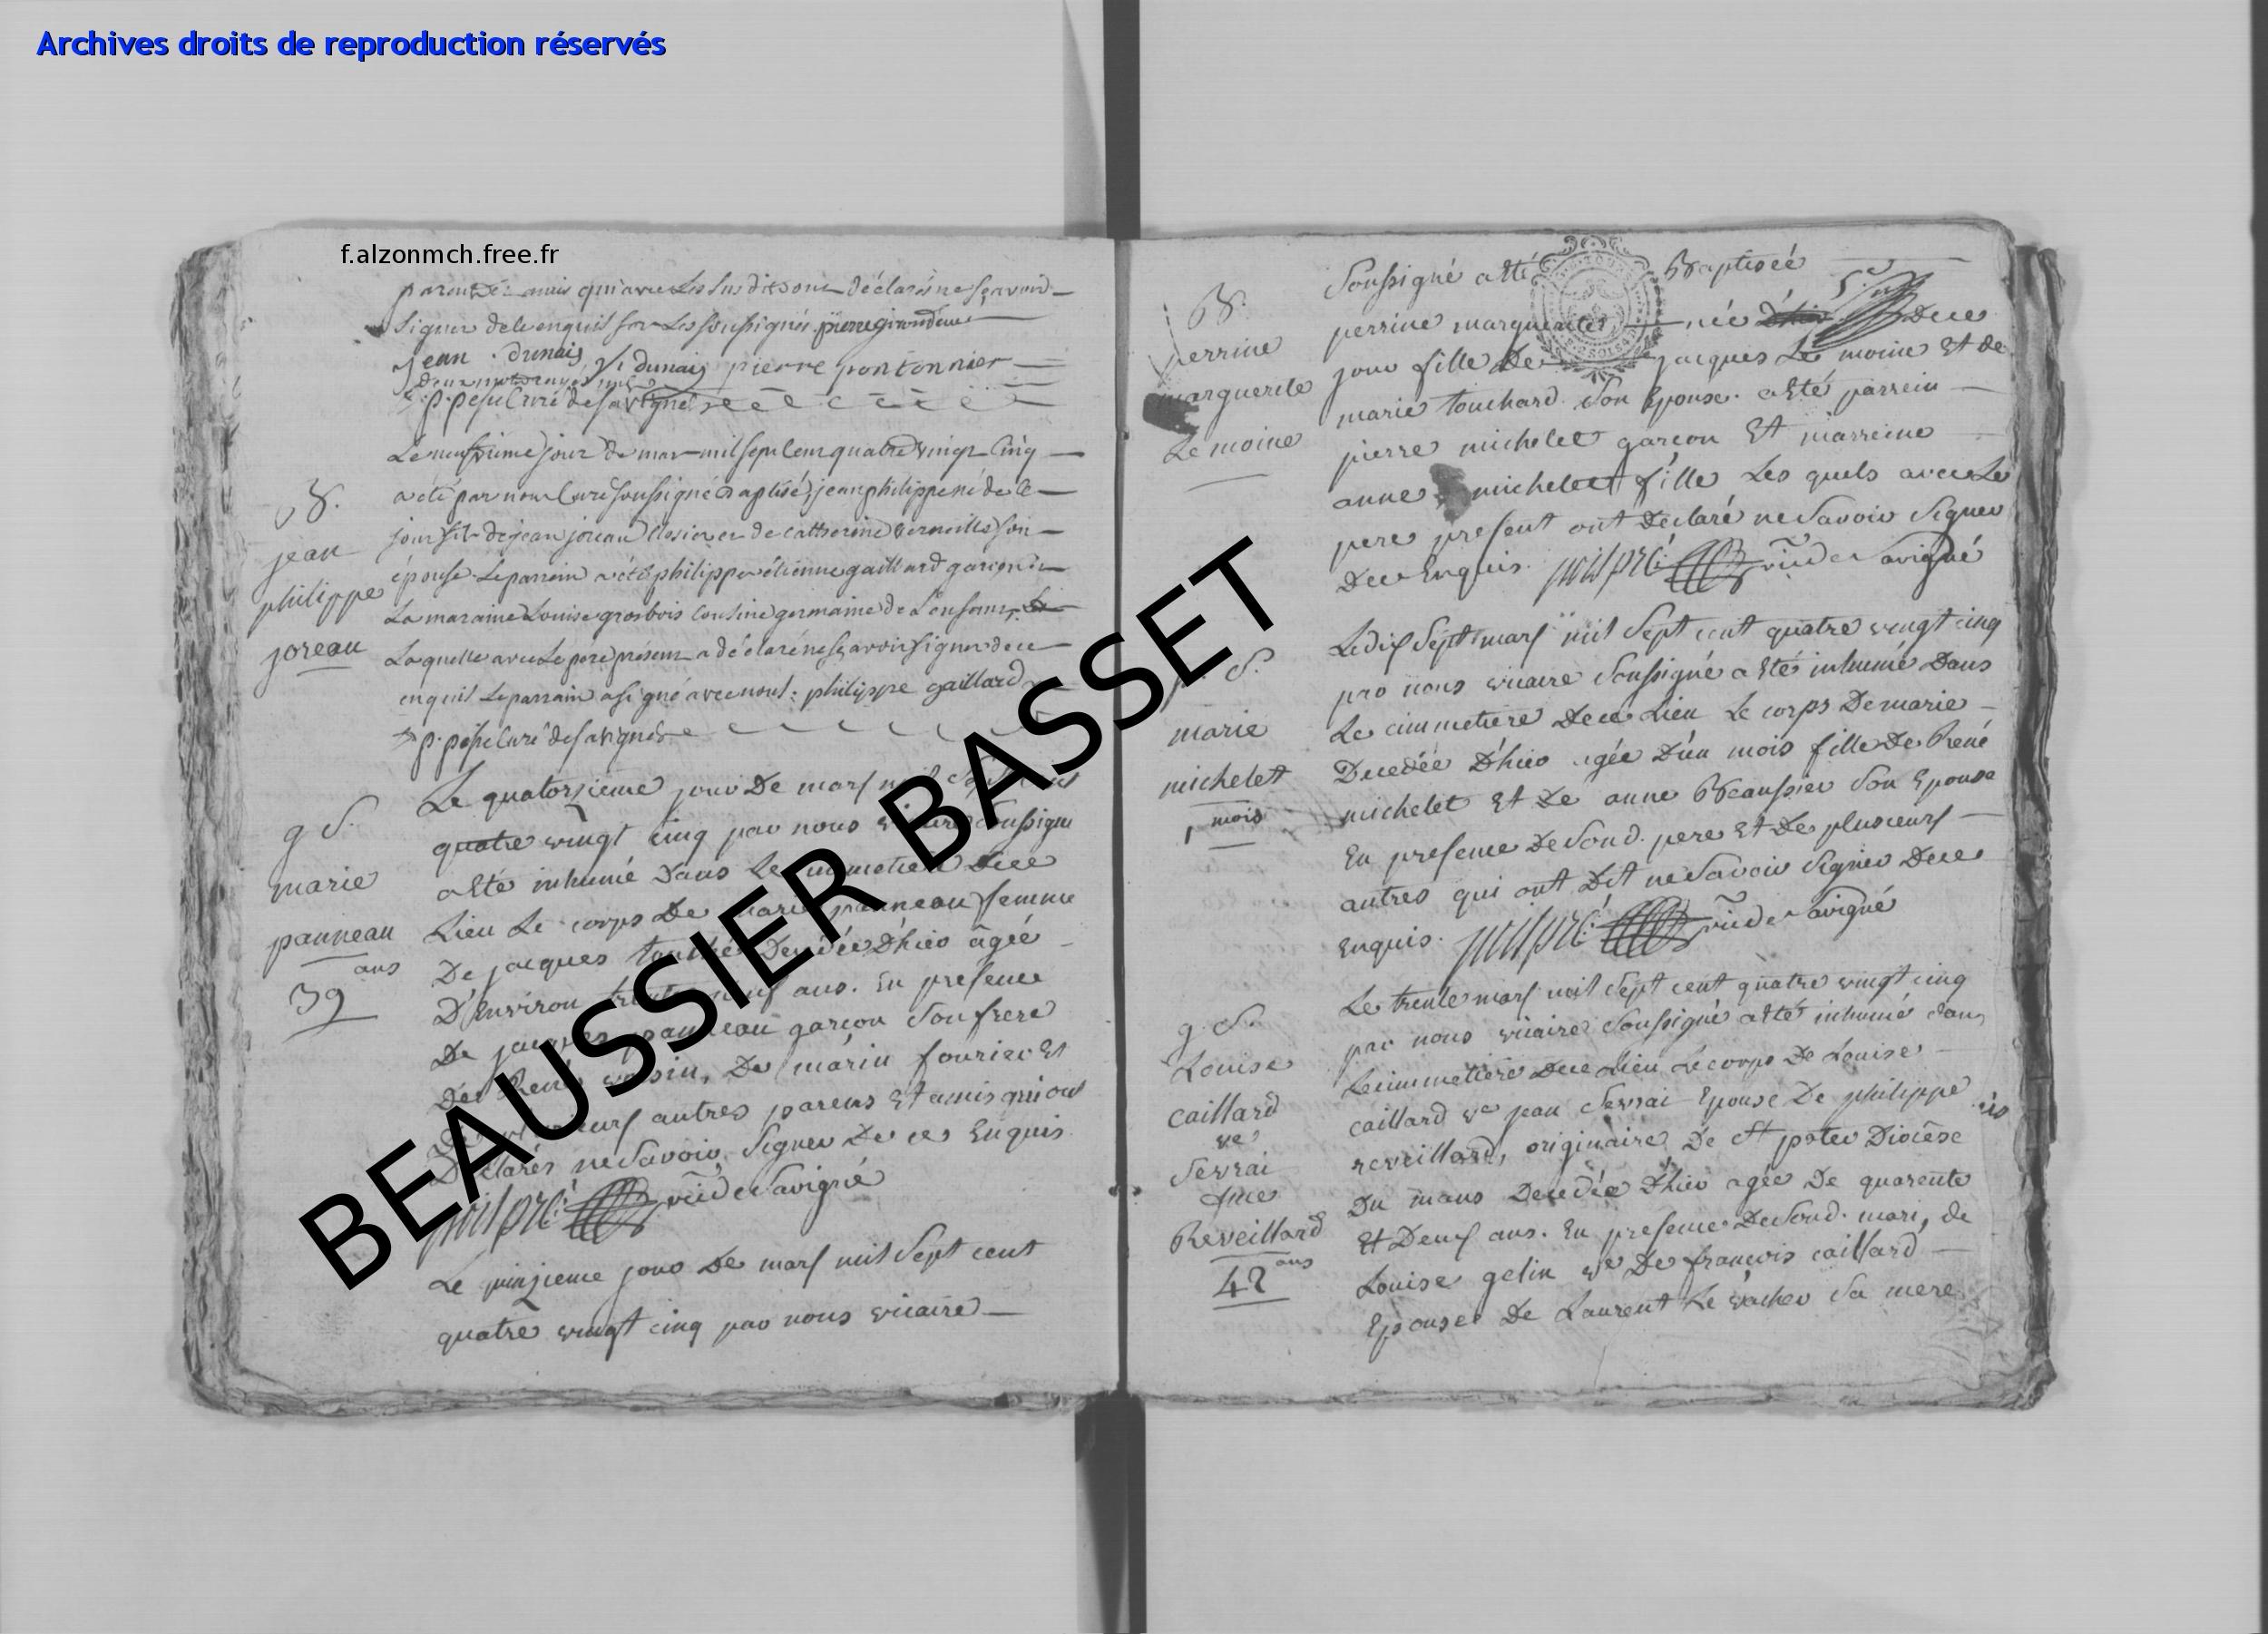 Archives droits de reproduction réservés
f.alzonmch.free.fr
signer de le enquis les soussignés pierre girardeau
jean dunais V. dunais pierre pontonnier
p. curé de savigné
Le neufvième jour de mars mil sept cent quatre vingt cinq
a été par nous curé soussigné baptisé jean philippe né de ce
jour fils de jean joreau closier et de catherine son
épouse Le parrein a été philippe étienne gaillard garçon
La maraine Louise grosbois cousine germaine de L'enfant
Laquelle avec Le père présent a déclaré ne sçavoir signer de ce
enquis Le parrain a signé avec nous : philippe gaillard
p. curé de savigné
B.
jean
philippe
joreau
Le quatorzieme jour De mars mil sept cent
quatre vingt cinq par nous vicaire soussigné
a Eté inhumé Dans Le cimmetiere Dece
Lieu Le corps De marie panneau femme
De jacques Decedée D'hier âgée
D'Environ trente neuf ans. En presence
De jacques panneau garçon son frere
De René voisin, De marin fourier Et
De plusieurs autres parens Et amis qui ont
Declarés ne savoir signer De ce Enquis
vic de savigné
g S.
marie
panneau
ans
39
Le quinzieme jour De mars mil sept cent
quatre vingt cinq par nous vicaire
soussigné a Eté Baptisée
perrine marguerite née Dece
jour fille De jacques Le moine Et de
marie touchard son Epouse. a Eté parrein
pierre michelet garçon Et marreine
anne michelet fille Les quels avec Le
pere present ont Declaré ne savoir signer
Dece Enquis. vic de savigné
B.
perrine
marguerite
Le moine
Le dix sept mars mil sept cent quatre vingt cinq
par nous vicaire soussigné a Eté inhumé Dans
Le cimmetiere Dece Lieu Le corps De marie
Decedée D'hier agée D'un mois fille De René
michelet Et De anne Beaussier son Epouse
En presence De son d. pere Et De plusieurs
autres qui ont Dit ne savoir signer Dece
Enquis. vic de savigné
p. S.
marie
michelet
1 mois
Le trente mars mil sept cent quatre vingt cinq
par nous vicaire soussigné a Eté inhumé dans
Le cimmetiere Dece Lieu Le corps De Louise
caillard ve jean sevrai Epouse De philippe
reveillard, originaire De St pater Diocèse
Du mans Decedée D'hier agée De quarente
Et Deux ans. En presence De son d. mari, de
Louise gelin ve De françois caillard
Epouse De Laurent Le vacher sa mere
g. S.
Louise
caillard
ve
sevrai
fme
Reveillard
ans
42
BEAUSSIER BASSET